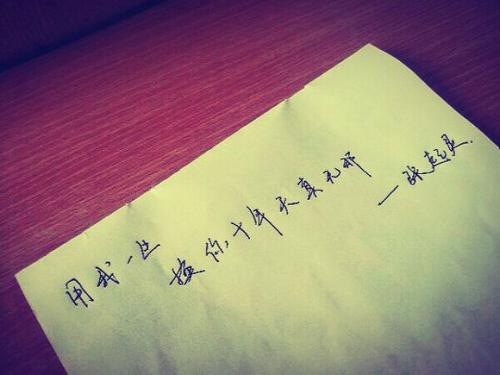 用我一生
换你十年天真无邪
—张起灵